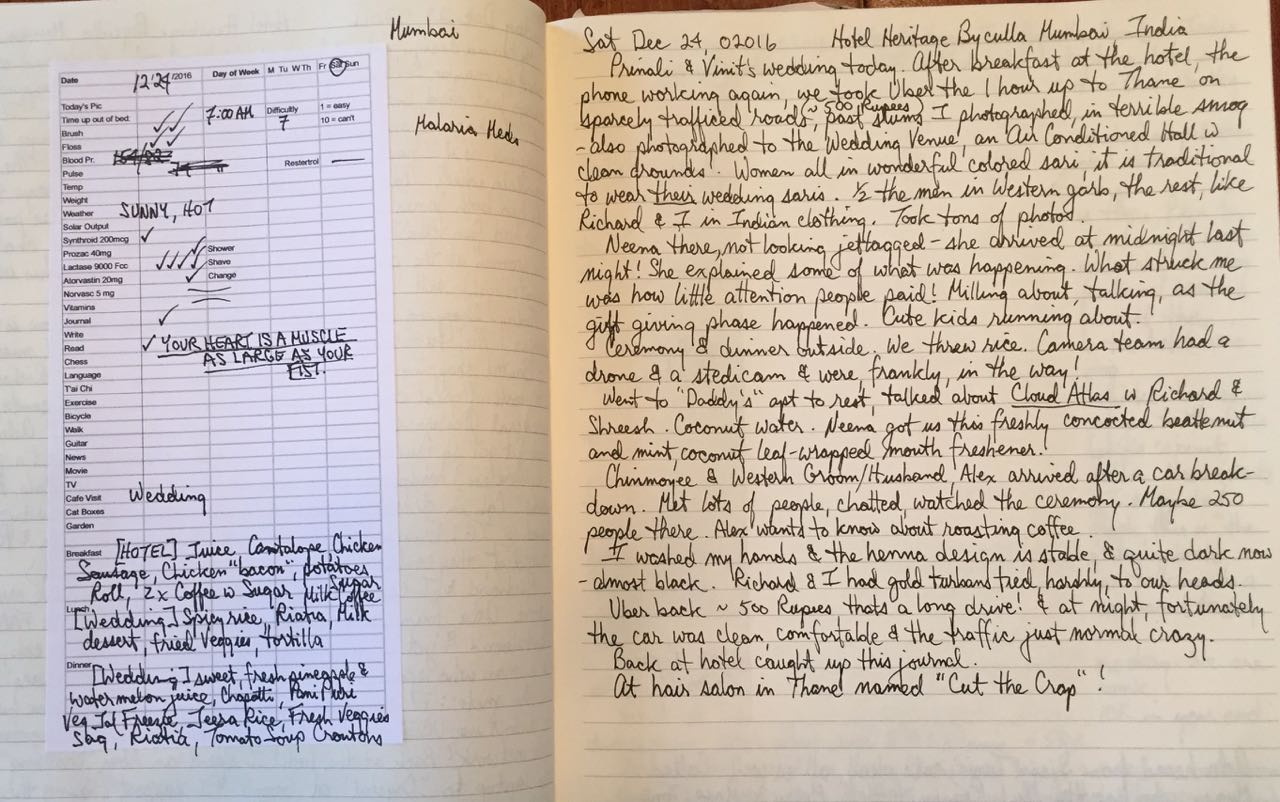 Mumbai
Malaria Meds
Date 12/24/2016 Day of Week M Tu W Th Fr Sat Sun
Today's Pic
Time up out of bed: 7:00 AM Difficulty 7 1 = easy
Brush ✓✓ 10 = can't
Floss ✓✓
Blood Pr. Restertrol —
Pulse
Temp
Weight
Weather SUNNY, HOT
Solar Output
Synthroid 200mcg ✓
Prozac 40mg Shower
Lactase 9000 Fcc ✓✓✓✓ Shave
Atorvastin 20mg Change
Norvasc 5 mg
Vitamins
Journal ✓
Write
Read ✓ YOUR HEART IS A MUSCLE
Chess AS LARGE AS YOUR
Language FIST.
T'ai Chi
Exercise
Bicycle
Walk
Guitar
News
Movie
TV
Cafe Visit Wedding
Cat Boxes
Garden
Breakfast [HOTEL] Juice, Cantalope, Chicken
Sausage, Chicken "bacon", potatoes
Roll, 2x Coffee w Sugar Milk Coffee Sugar
Lunch [Wedding] Spicy rice, Riatra, Milk
dessert, fried Veggies, tortilla
Dinner [Wedding] sweet, fresh pineapple &
watermelon juice, Chapatti, Pani Puri
Veg Jal Freeze, Jeera Rice, Fresh Veggies
Saq, Riatia, Tomato Soup Croutons
Sat Dec 24, 02016 Hotel Heritage Byculla Mumbai India
Prinali & Vinit's wedding today. After breakfast at the hotel, the
phone working again, we took Uber the 1 hour up to Thane on
sparcely trafficed roads, (~ 500 Rupees) past slums I photographed, in terrible smog
- also photographed to the Wedding Venue, an Air Conditioned Hall w
clean grounds. Women all in wonderful colored sari, it is traditional
to wear their wedding saris. ½ the men in Western garb, the rest, like
Richard & I in Indian clothing. Took tons of photos.
Neena there, not looking jetlagged - she arrived at midnight last
night! She explained some of what was happening. What struck me
was how little attention people paid! Milling about, talking, as the
gift giving phase happened. Cute kids running about.
Ceremony & dinner outside. We threw rice. Camera team had a
drone & a stedicam & were, frankly, in the way!
Went to "Daddy's" apt to rest, talked about Cloud Atlas w Richard &
Shreesh. Coconut water. Neena got us this freshly concocted beattenut
and mint, coconut leaf-wrapped mouth freshener.
Chinmoyee & Western Groom/Husband, Alex arrived after a car break-
down. Met lots of people, chatted, watched the ceremony. Maybe 250
people there. Alex wants to know about roasting coffee.
I washed my hands & the henna design is stable, & quite dark now
- almost black. Richard & I had gold turbans tied, harshly, to our heads.
Uber back ~ 500 Rupies thats a long drive! & at night, fortunately
the car was clean, comfortable & the traffic just normal crazy.
Back at hotel caught up this journal.
At hair salon in Thane named "Cut the Crap"!